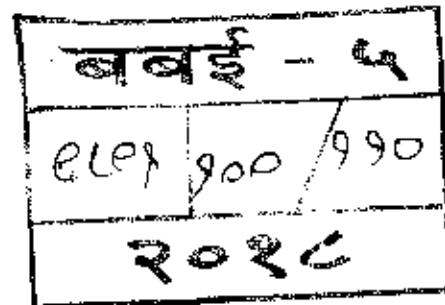 बबई - ५
९८९१ १०० / ११०
२०१८